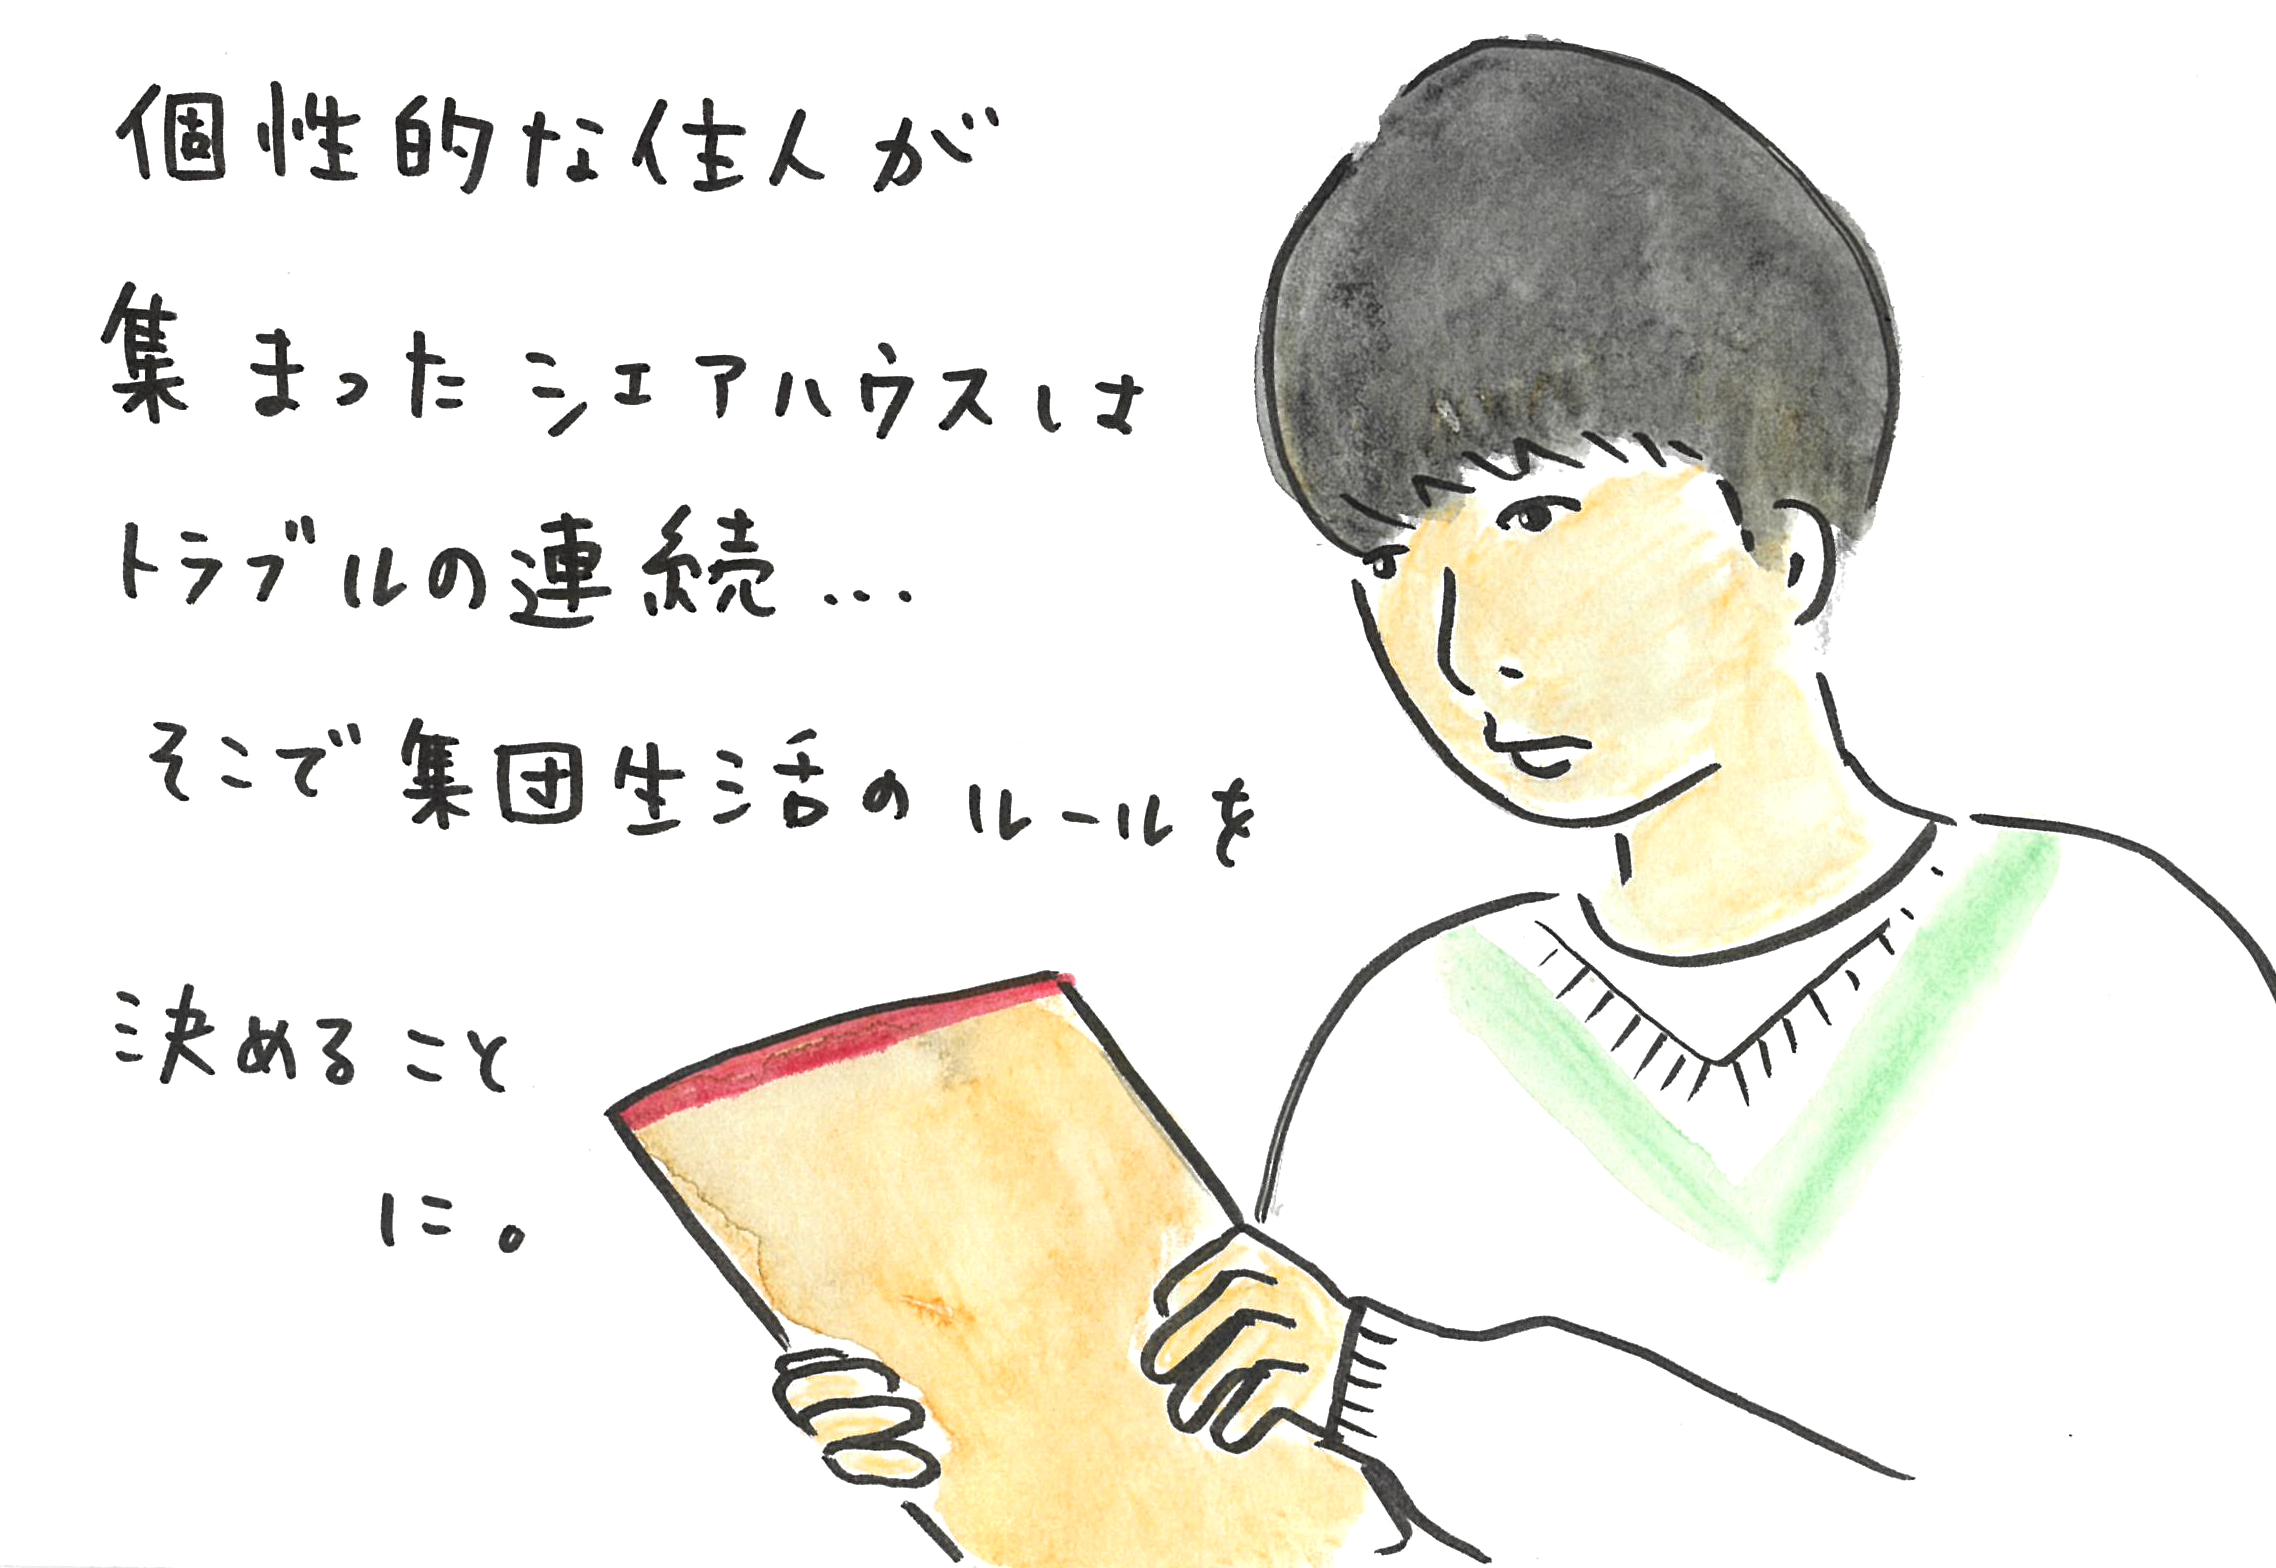 個性的な住人が
集まったシェアハウスは
トラブルの連続…
そこで集団生活のルールを
決めること
に。